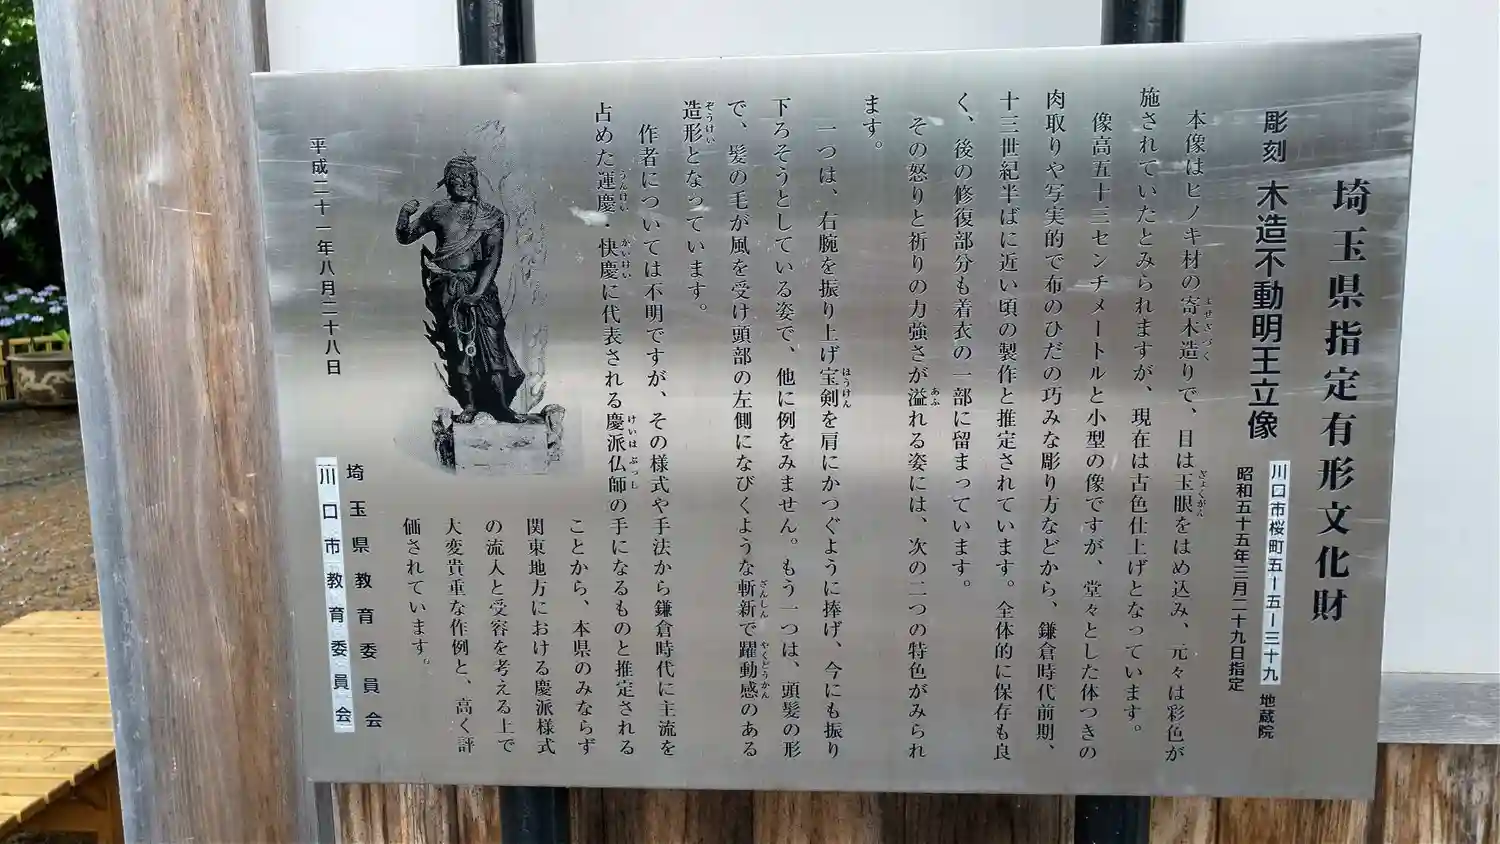 埼玉県指定有形文化財
彫刻 木造不動明王立像
川口市桜町五ー五ー三十九 地蔵院
昭和五十五年三月二十九日指定
本像はヒノキ材の寄木造りで、目は玉眼をはめ込み、元々は彩色が
よせぎづく
ぎょくがん
施されていたとみられますが、現在は古色仕上げとなっています。
像高五十三センチメートルと小型の像ですが、堂々とした体つきの
肉取りや写実的で布のひだの巧みな彫り方などから、鎌倉時代前期、
十三世紀半ばに近い頃の製作と推定されています。全体的に保存も良
く、後の修復部分も着衣の一部に留まっています。
その怒りと祈りの力強さが溢れる姿には、次の二つの特色がみられ
あふ
ます。
一つは、右腕を振り上げ宝剣を肩にかつぐように捧げ、今にも振り
ほうけん
下ろそうとしている姿で、他に例をみません。もう一つは、頭髪の形
で、髪の毛が風を受け頭部の左側になびくような斬新で躍動感のある
ざんしん
やくどうかん
造形となっています。
ぞうけい
作者については不明ですが、その様式や手法から鎌倉時代に主流を
占めた運慶・快慶に代表される慶派仏師の手になるものと推定される
うんけい
かいけい
けいは ぶっし
ことから、本県のみならず
関東地方における慶派様式
の流入と受容を考える上で
大変貴重な作例と、高く評
価されています。
平成二十一年八月二十八日
埼玉県教育委員会
川口市教育委員会